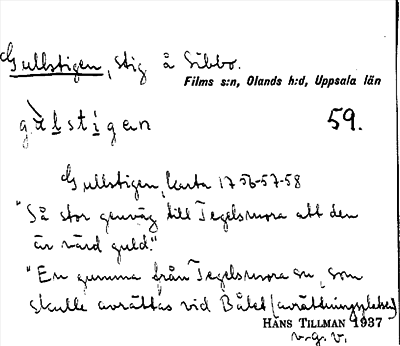 Gullstigen, stig å Sibbo.
Films s:n, Olands h:d, Uppsala län
gàlstigen 59.
Gullstigen, karta 1756-57-58
"Så stor genväg till Tegelsmora att den
är värd guld."
"En gumma från Tegelsmora sn, som
skulle avrättas vid Bålet (avrättningsplatsen)
HANS TILLMAN 1937
v.g.v.